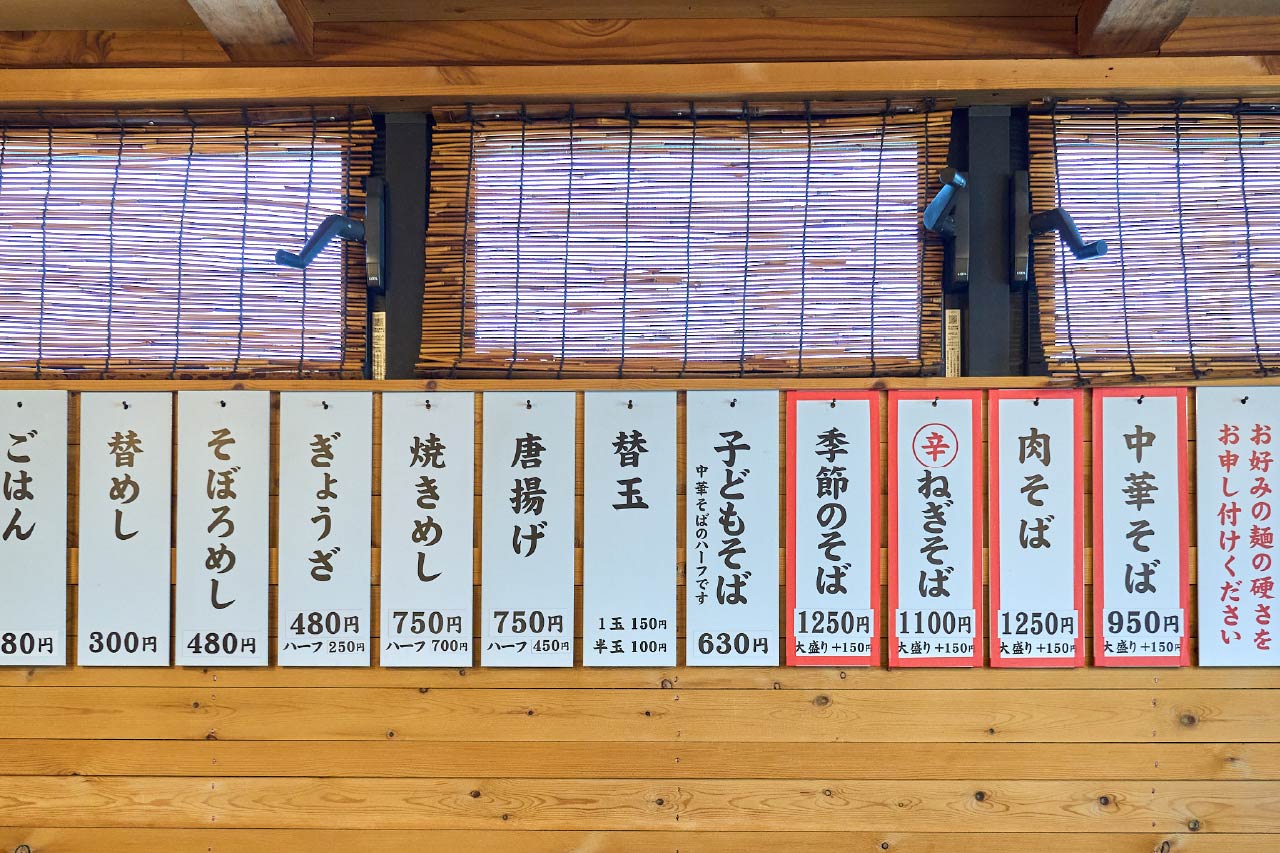 お好みの麺の硬さを
お申し付けください
中華そば
950円
大盛り+150円
肉そば
1250円
大盛り+150円
辛
ねぎそば
1100円
大盛り+150円
季節のそば
1250円
大盛り+150円
子どもそば
中華そばのハーフです
630円
替玉
1玉 150円
半玉 100円
唐揚げ
750円
ハーフ 450円
焼きめし
750円
ハーフ 700円
ぎょうざ
480円
ハーフ 250円
そぼろめし
480円
替めし
300円
ごはん
80円